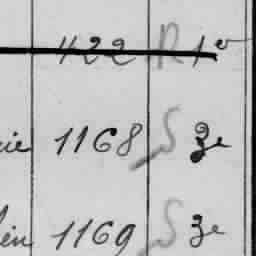 422 R 1e
ie 1168 S 3e
en 1169 S 3e